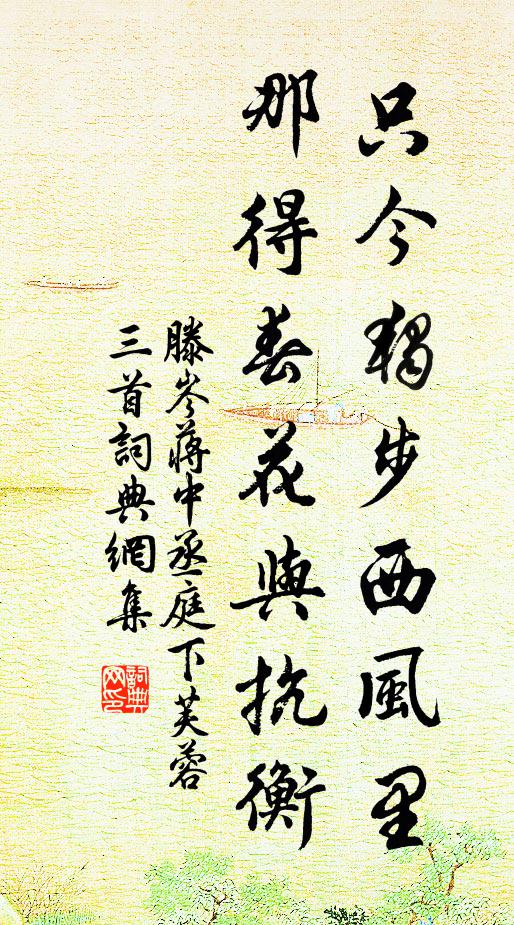 只今獨步西風里
那得春花與抗衡
滕岑蔣中丞庭下芙蓉
三首詞典網集
詞典
网印